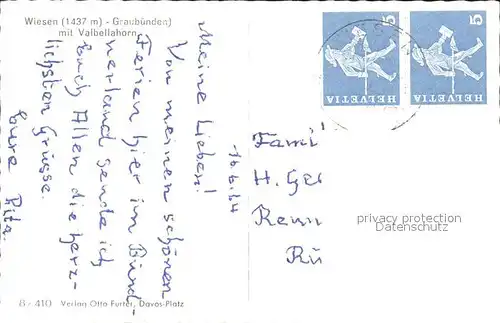 Wiesen (1437 m) - Graubünden)
mit Valbellahorn
16.6.64
Meine Lieben!
Von meinen schönen
Ferien hier im Bünd-
nerland sende ich
Euch Allen die herz-
lichsten Grüsse.
Eure Rita.
HELVETIA
5
HELVETIA
5
WIESEN
Fami
H. Ge
Renn
Rü
privacy protection
Datenschutz
8-410 Verlag Otto Furter, Davos-Platz